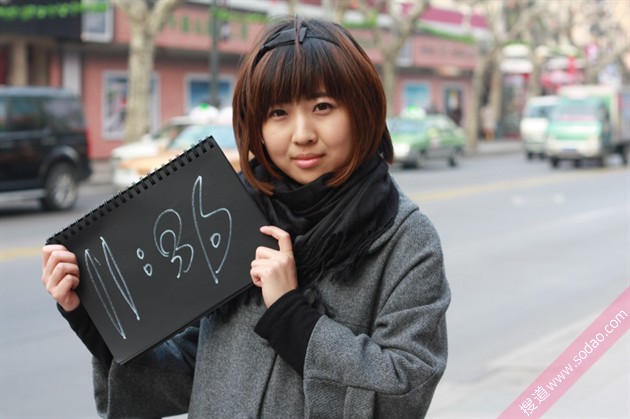 11:36
搜道www.sodao.com